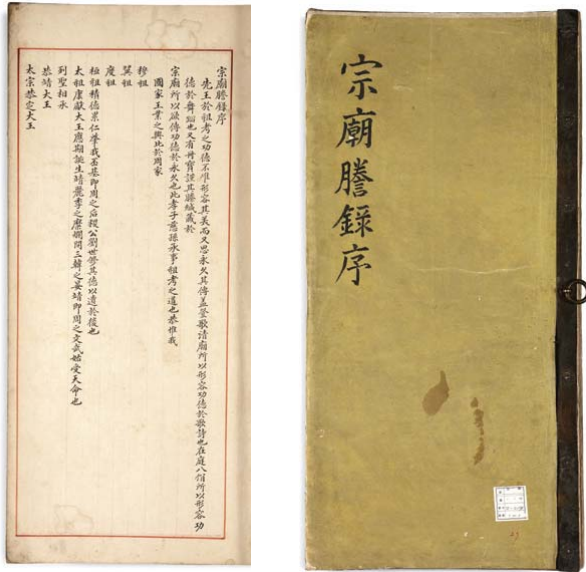 宗廟謄錄序
宗廟謄錄序
先王於祖考之功德不唯形容其美而又思永久其傳盖登歌清廟所以形容功德於歌詩也在庭八佾所以形容功
德於舞蹈也又有册寶謹其縢緘藏於
宗廟所以傳功德於永久也此孝子慈孫承事祖考之道也恭惟我
國家王業之興比於周家
穆祖
翼祖
度祖
桓祖積德累仁肇我丕基即周之后稷公劉世篤其德以遺於後也
太祖康獻大王應期誕生靖麗季之糜爛開三韓之晏靖即周之文武始受天命也
列聖相承
恭靖大王
太宗恭定大王